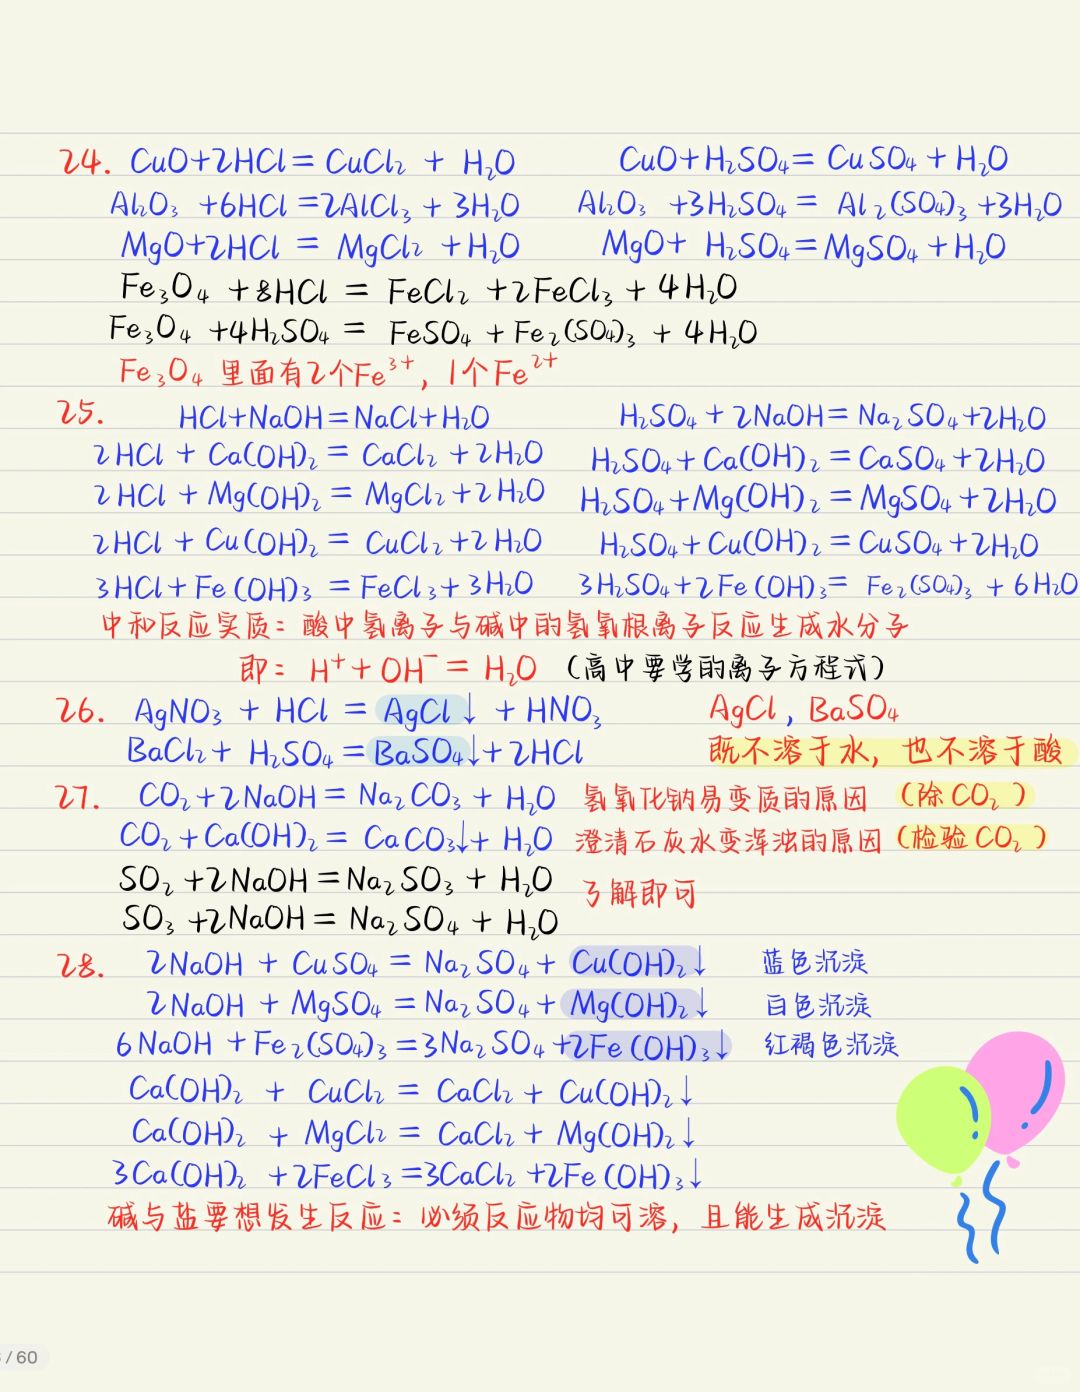 24. CuO+2HCl=CuCl₂ + H₂O CuO+H₂SO₄=CuSO₄+H₂O
Al₂O₃ +6HCl=2AlCl₃+3H₂O Al₂O₃ +3H₂SO₄= Al₂(SO₄)₃+3H₂O
MgO+2HCl = MgCl₂ +H₂O MgO+ H₂SO₄=MgSO₄+H₂O
Fe₃O₄ +8HCl = FeCl₂ +2FeCl₃+4H₂O
Fe₃O₄ +4H₂SO₄ = FeSO₄+Fe₂(SO₄)₃ +4H₂O
Fe₃O₄ 里面有2个Fe³⁺, 1个Fe²⁺
25. HCl+NaOH=NaCl+H₂O H₂SO₄+2NaOH=Na₂SO₄+2H₂O
2HCl + Ca(OH)₂ = CaCl₂+2H₂O H₂SO₄+Ca(OH)₂=CaSO₄+2H₂O
2HCl + Mg(OH)₂ = MgCl₂+2H₂O H₂SO₄+Mg(OH)₂=MgSO₄+2H₂O
2HCl + Cu(OH)₂ = CuCl₂+2H₂O H₂SO₄+Cu(OH)₂=CuSO₄+2H₂O
3HCl+Fe(OH)₃ =FeCl₃+3H₂O 3H₂SO₄+2Fe(OH)₃= Fe₂(SO₄)₃ + 6H₂O
中和反应实质: 酸中氢离子与碱中的氢氧根离子反应生成水分子
即: H⁺+OH⁻=H₂O (高中要学的离子方程式)
26. AgNO₃ + HCl = AgCl↓ +HNO₃ AgCl, BaSO₄
BaCl₂+ H₂SO₄=BaSO₄↓+2HCl 既不溶于水, 也不溶于酸
27. CO₂+2NaOH=Na₂CO₃+H₂O 氢氧化钠易变质的原因 (除CO₂)
CO₂+Ca(OH)₂= CaCO₃↓+ H₂O 澄清石灰水变浑浊的原因 (检验CO₂)
SO₂+2NaOH=Na₂SO₃ + H₂O 了解即可
SO₃ +2NaOH= Na₂SO₄ + H₂O
28. 2NaOH + CuSO₄ = Na₂SO₄+ Cu(OH)₂↓ 蓝色沉淀
2NaOH + MgSO₄ =Na₂SO₄+ Mg(OH)₂↓ 白色沉淀
6NaOH +Fe₂(SO₄)₃=3Na₂SO₄+2Fe(OH)₃↓ 红褐色沉淀
Ca(OH)₂ + CuCl₂ = CaCl₂+ Cu(OH)₂↓
Ca(OH)₂ + MgCl₂ = CaCl₂+ Mg(OH)₂↓
3Ca(OH)₂ +2FeCl₃=3CaCl₂+2Fe(OH)₃↓
碱与盐要想发生反应: 必须反应物均可溶, 且能生成沉淀
/ 60